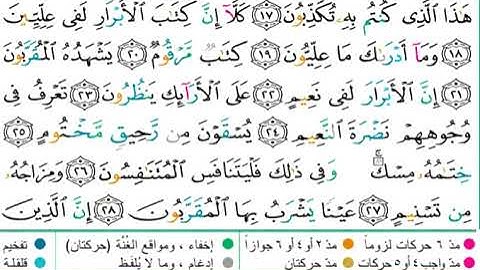 هَٰذَا ٱلَّذِى كُنتُم بِهِۦ تُكَذِّبُونَ ﴿١٧﴾ كَلَّآ إِنَّ كِتَٰبَ ٱلْأَبْرَارِ لَفِى عِلِّيِّينَ
﴿١٨﴾ وَمَآ أَدْرَىٰكَ مَا عِلِّيُّونَ ﴿١٩﴾ كِتَٰبٌ مَّرْقُومٌ ﴿٢٠﴾ يَشْهَدُهُ ٱلْمُقَرَّبُونَ
﴿٢١﴾ إِنَّ ٱلْأَبْرَارَ لَفِى نَعِيمٍ ﴿٢٢﴾ عَلَى ٱلْأَرَآئِكِ يَنظُرُونَ ﴿٢٣﴾ تَعْرِفُ فِى
وُجُوهِهِمْ نَضْرَةَ ٱلنَّعِيمِ ﴿٢٤﴾ يُسْقَوْنَ مِن رَّحِيقٍ مَّخْتُومٍ ﴿٢٥﴾
خِتَٰمُهُۥ مِسْكٌ ۚ وَفِى ذَٰلِكَ فَلْيَتَنَافَسِ ٱلْمُتَنَٰفِسُونَ ﴿٢٦﴾ وَمِزَاجُهُۥ
مِن تَسْنِيمٍ ﴿٢٧﴾ عَيْنًا يَشْرَبُ بِهَا ٱلْمُقَرَّبُونَ ﴿٢٨﴾ إِنَّ ٱلَّذِينَ
مدّ ٦ حركات لزوماً مدّ ٢ أو ٤ أو ٦ جوازاً إخفاء، ومواقع الغُنَّة (حركتان) تفخيم
مدّ واجب ٤ أو ٥ حركات مدّ حركتان إدغام، وما لا يُلفَظ قلقلة